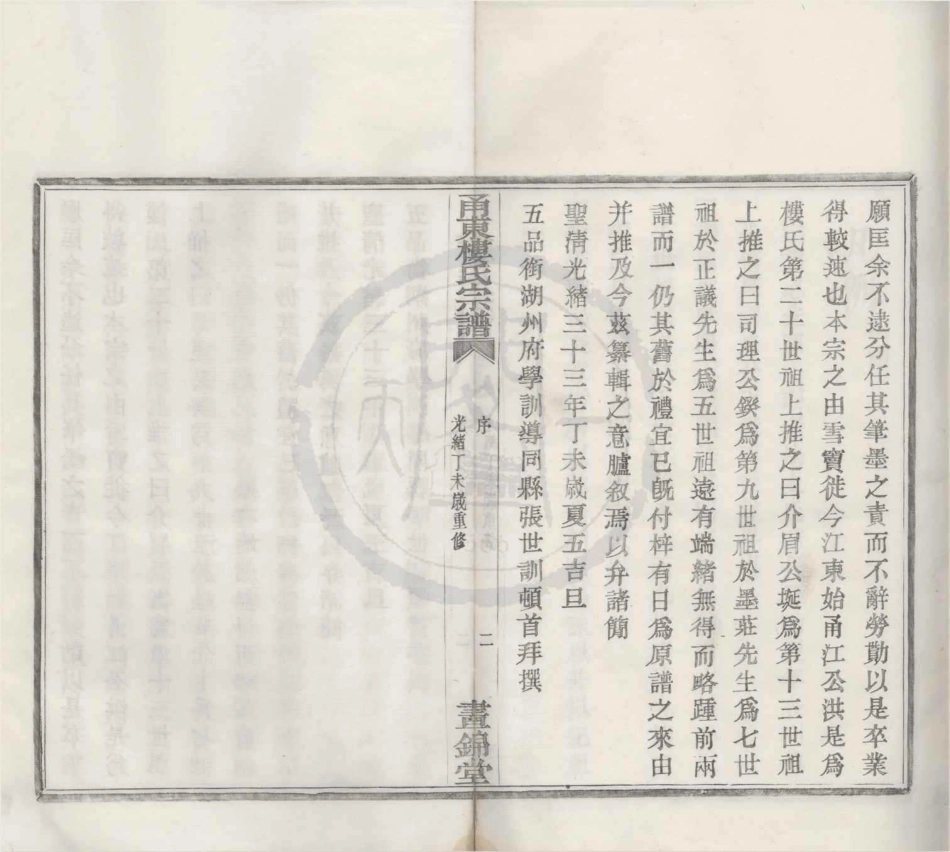 願匡余不逮分任其筆墨之責而不辭勞勩以是卒業
得較速也本宗之由雪竇徙今江東始甬江公洪是爲
樓氏第二十世祖上推之曰介眉公埏爲第十三世祖
上推之曰司理公鍨爲第九世祖於墨莊先生爲七世
祖於正議先生爲五世祖遠有端緒無得而略踵前兩
譜而一仍其舊於禮宜已旣付梓有日爲原譜之來由
并推及今茲纂輯之意臚叙焉以弁諸簡
聖清光緒三十三年丁未嵗夏五吉旦
五品銜湖州府學訓導同縣張世訓頓首拜撰
甬東樓氏宗譜
序
光緒丁未嵗重修
二
晝錦堂